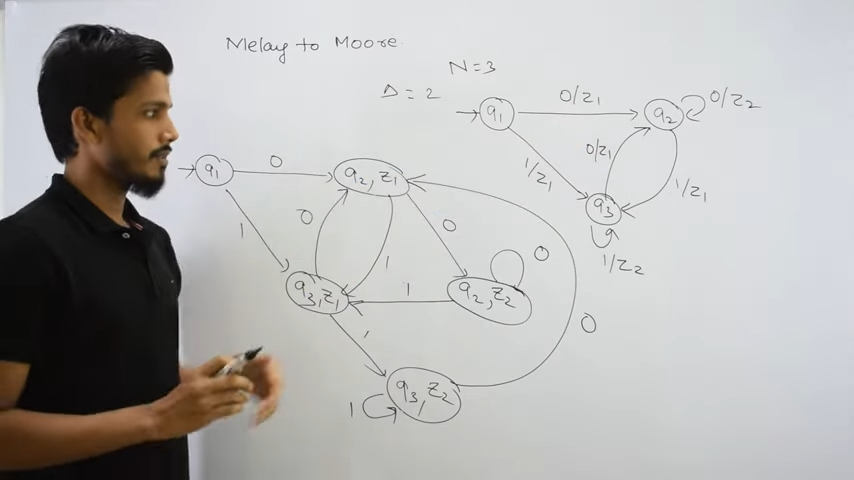 Melay to Moore
N=3
Δ = 2
q1
0/Z1
q2
0/Z2
1/Z1
0/Z1
1/Z1
q3
1/Z2
q1
0
q2, Z1
1
0
1
0
q3, Z1
1
q2, Z2
0
0
1
q3, Z2
1